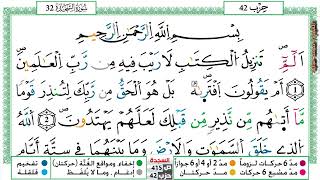 سُورَةُ السَّجْدَةِ 32
حِزْب 42
بِسْمِ اللَّهِ الرَّحْمَٰنِ الرَّحِيمِ
الٓمٓ تَنزِيلُ الْكِتَابِ لَا رَيْبَ فِيهِ مِن رَّبِّ الْعَالَمِينَ
1 أَمْ يَقُولُونَ افْتَرَاهُ بَلْ هُوَ الْحَقُّ مِن رَّبِّكَ لِتُنذِرَ قَوْمًا
مَّا أَتَاهُم مِّن نَّذِيرٍ مِّن قَبْلِكَ لَعَلَّهُمْ يَهْتَدُونَ 2
الَّذِي خَلَقَ السَّمَاوَاتِ وَالْأَرْضَ وَمَا بَيْنَهُمَا فِي سِتَّةِ أَيَّامٍ
مدّ 6 حركات لزوماً مدّ 2 أو 4 أو 6 جوازاً
مدّ مشبع 6 حركات مدّ حركتان
السجدة
415
حزب 42
إخفاء ومواقع الغُنَّة (حركتان) تفخيم
إدغام، وما لا يُلفَظ قلقلة